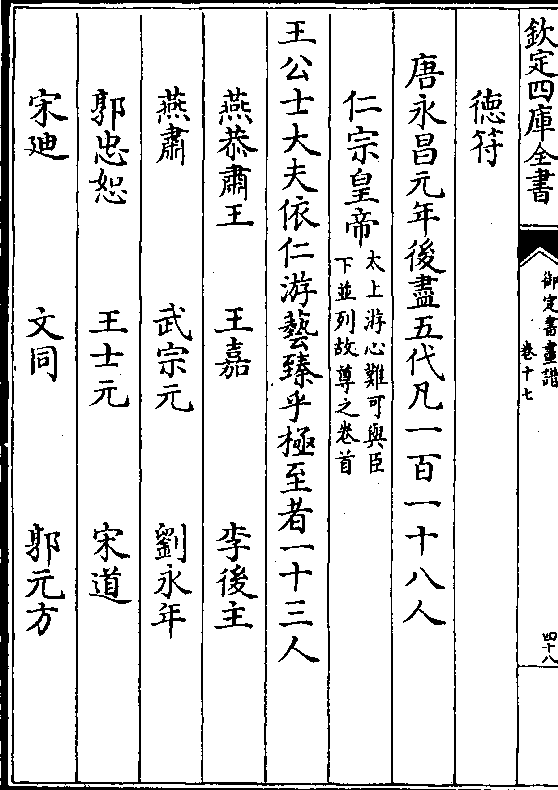 欽定四庫全書
御定書畫譜
卷十七
四十八
德符
唐永昌元年後盡五代凡一百一十八人
仁宗皇帝太上游心難可與臣
下並列故尊之卷首
王公士大夫依仁游藝臻乎極至者一十三人
燕恭肅王 王嘉 李後主
燕肅 武宗元 劉永年
郭忠恕 王士元 宋道
宋迪 文同 郭元方